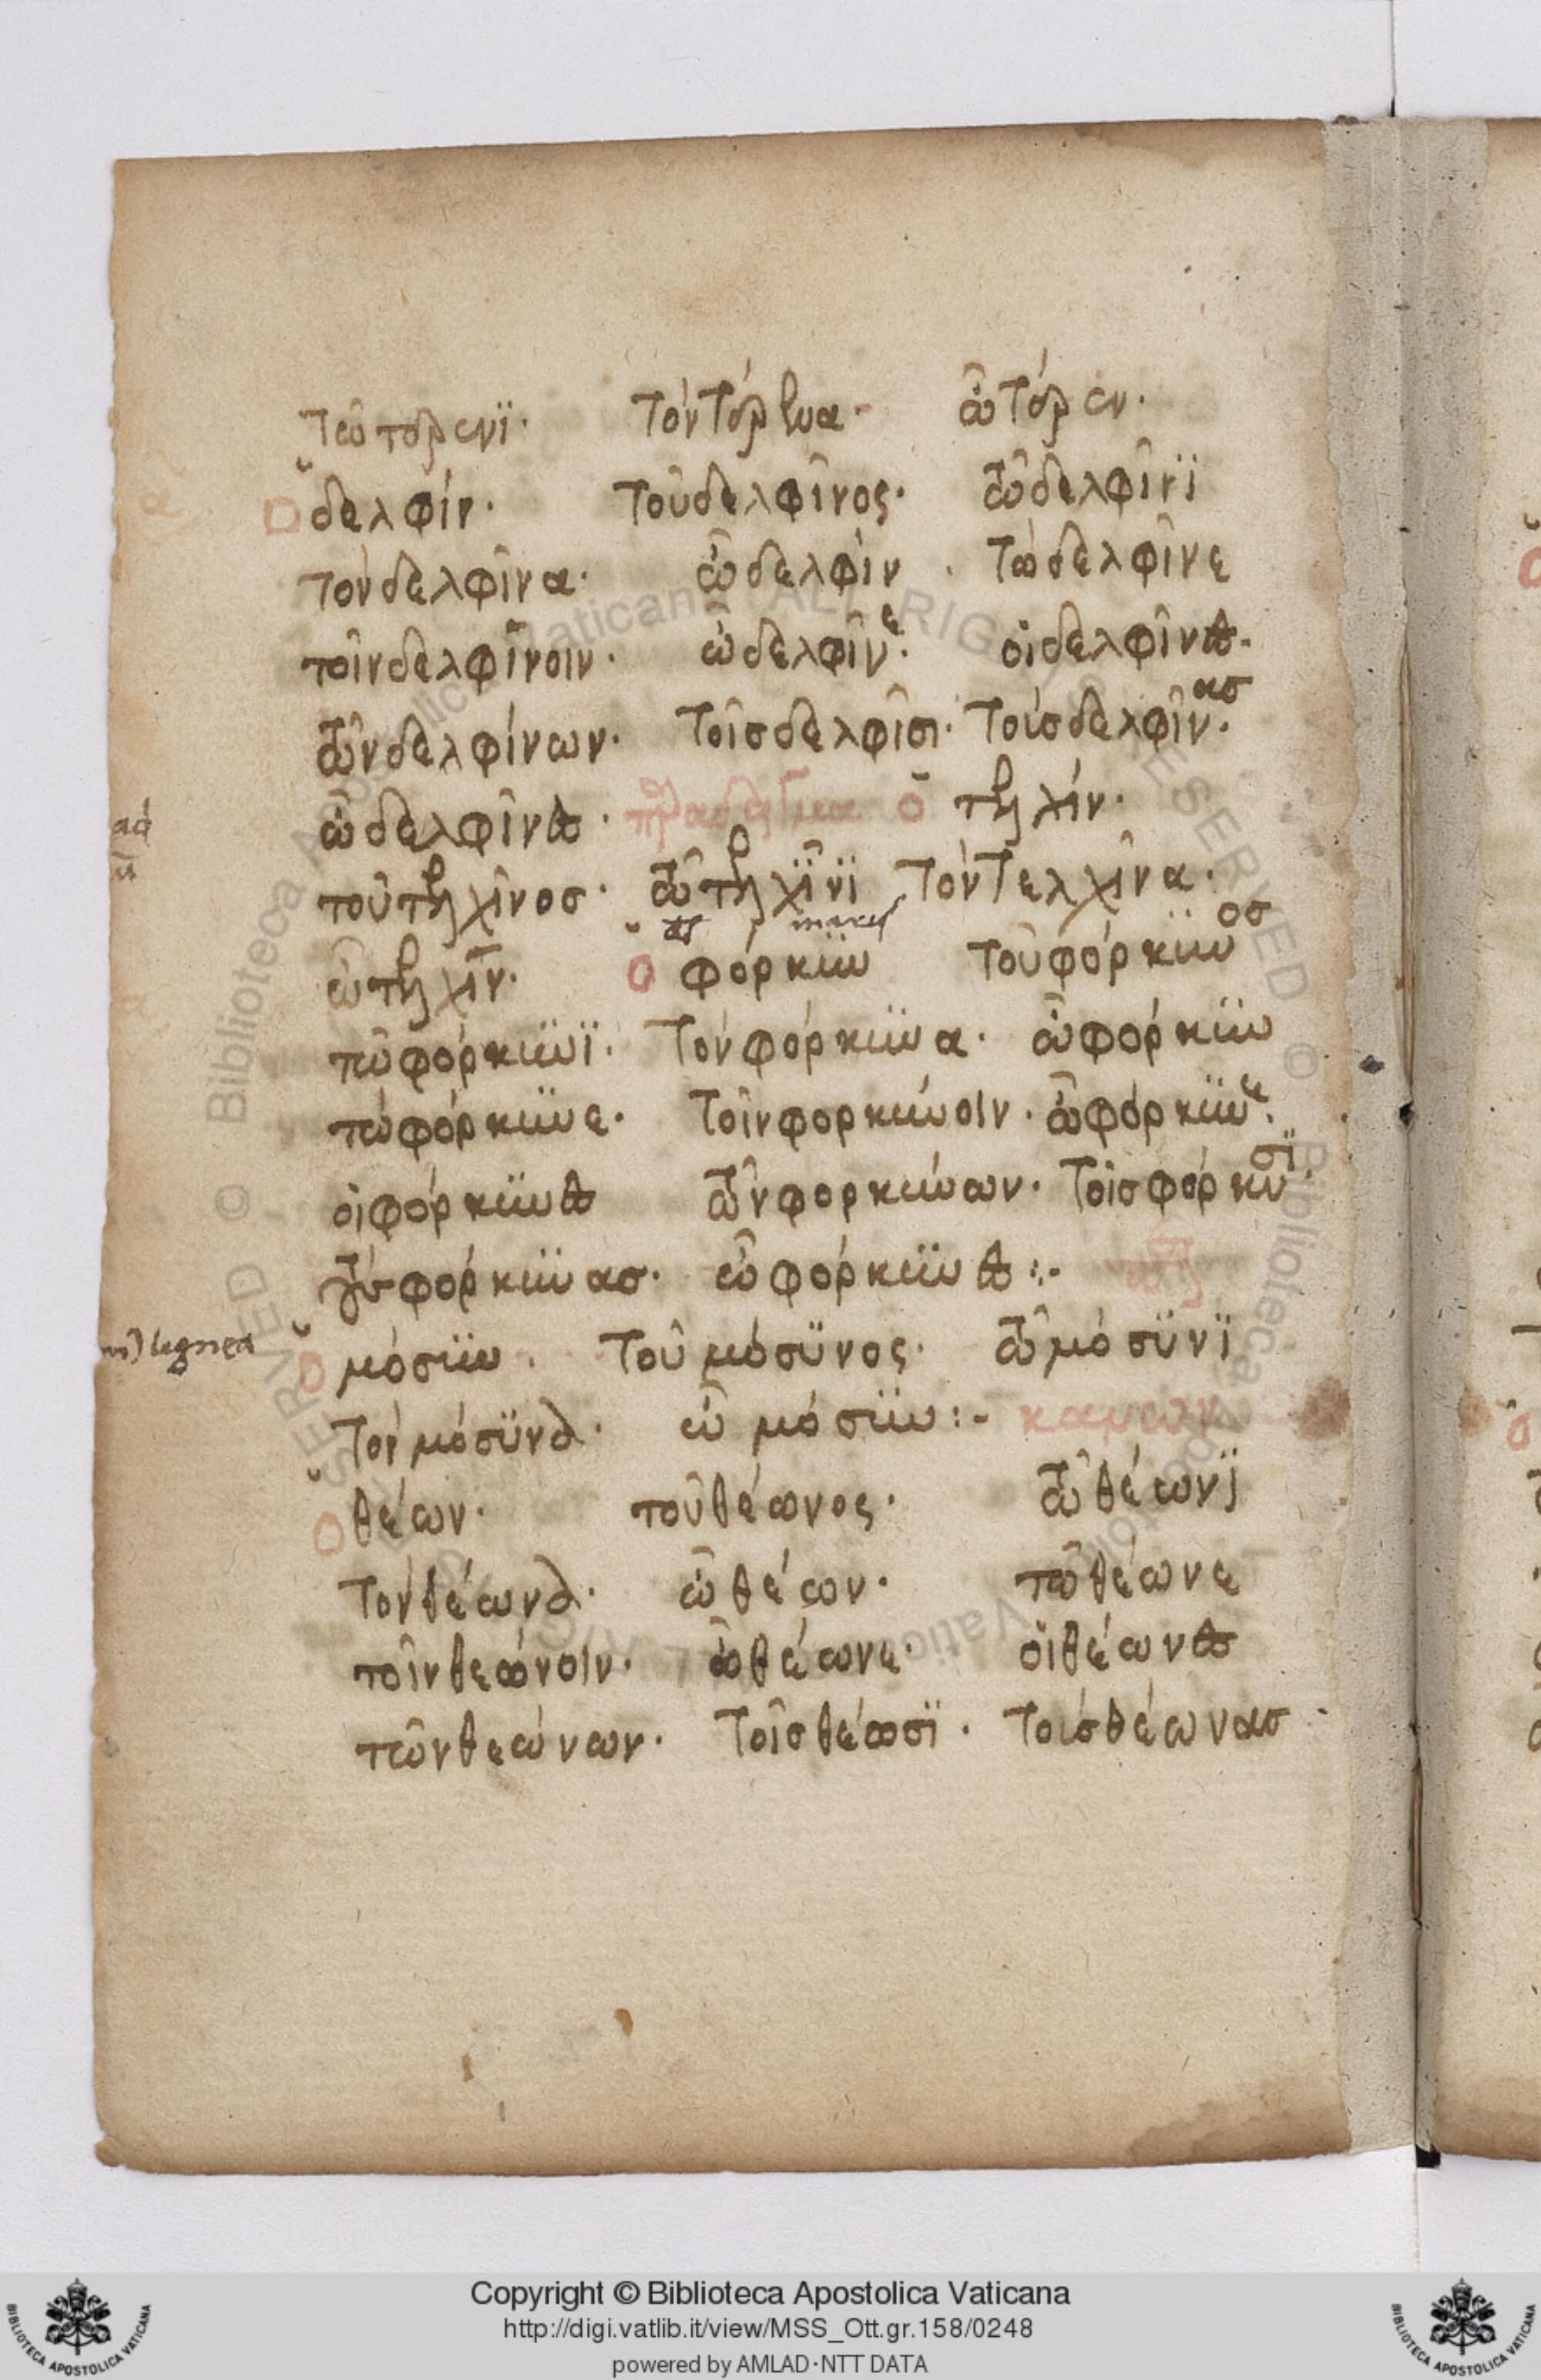 τῶ τόρενϊ· τὸν τόρενα· ὦ τόρεν·
ὁ δελφίν· τοῦ δελφῖνος· τῶ δελφῖνϊ
τὸν δελφῖνα· ὦ δελφίν· τὼ δελφῖνε
τοῖν δελφῖνοιν· ὦ δελφῖνε· οἱ δελφῖνες·
τῶν δελφίνων· τοῖσ δελφῖσι· τοὺσ δελφῖνασ·
ὦ δελφῖνες· ὁ τελχίν·
τοῦ τελχῖνοσ· τῶ τελχῖνϊ τὸν τελχῖνα·
ὦ τελχῖν· ὁ φόρκϋν τοῦ φόρκϋνοσ
τῶ φόρκϋνϊ· τὸν φόρκϋνα· ὦ φόρκϋν
τὼ φόρκϋνε· τοῖν φορκύνοιν· ὦ φόρκϋνε·
οἱ φόρκϋνες τῶν φορκύνων· τοῖσ φόρκυσϊ·
τοὺς φόρκϋνασ· ὦ φόρκϋνες :-
ὁ μόσϋν· τοῦ μόσϋνος· τῶ μόσϋνϊ
τὸν μόσϋνα· ὦ μόσϋν :- κανὼν
ὁ θέων· τοῦ θέωνος· τῶ θέωνϊ
τὸν θέωνα· ὦ θέων· τὼ θέωνε
τοῖν θεώνοιν· ὦ θέωνε· οἱ θέωνες
τῶν θεώνων· τοῖσ θέωσϊ· τοὺσ θέωνασ
ad
lignea
Copyright © Biblioteca Apostolica Vaticana
http://digi.vatlib.it/view/MSS_Ott.gr.158/0248
powered by AMLAD·NTT DATA